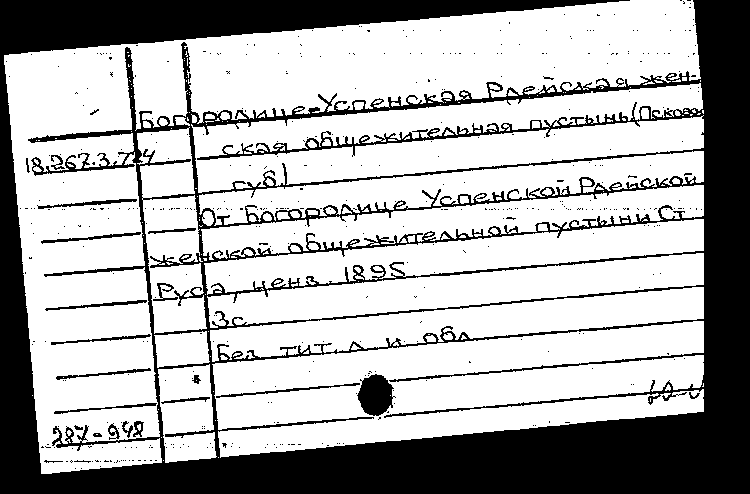 Богородице-Успенская Рдейская жен-
18.267.3.724 ская общежительная пустынь (Псковая
губ).
От Богородице Успенской Рдейской
женской общежительной пустыни Ст
Руса, ценз. 1895
3с.
Без тит. л и обл
287-948